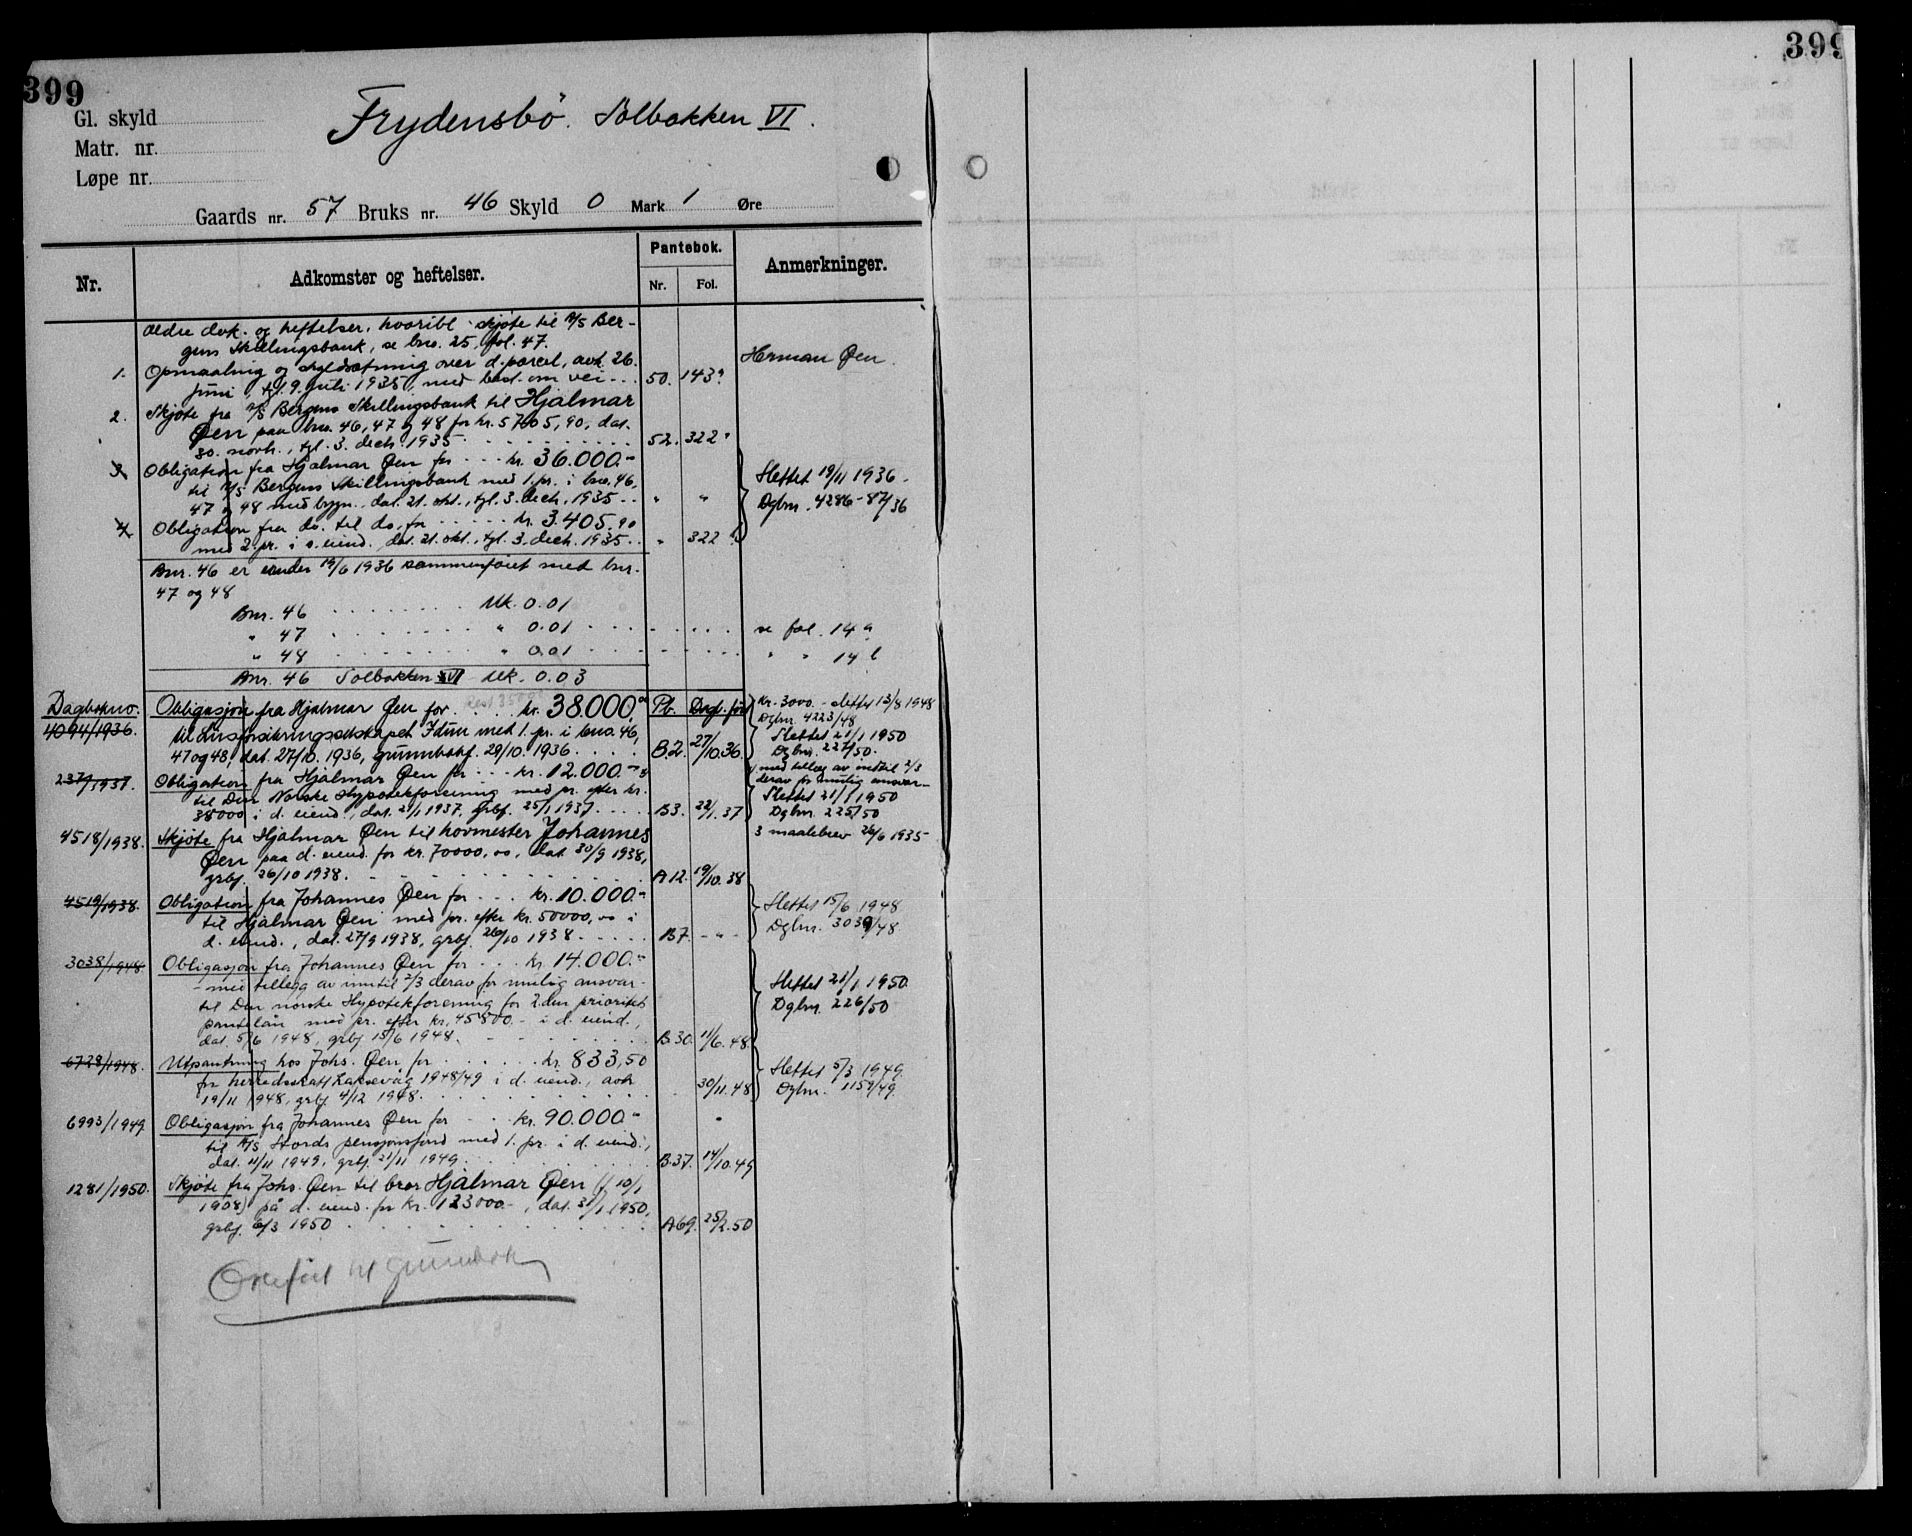 399
399
Gl. skyld
Matr. nr.
Løpe nr.
Frydensbö. Solbakken VI.
Gaards nr. 57 Bruks nr. 46 Skyld 0 Mark 1 Øre
Nr. Adkomster og heftelser. Pantebok. Nr. Fol. Anmerkninger.
Ældre dok. og heftelser, hvoribl. skjøte til A/S Ber-
gens Skillingsbank, se bno. 25, fol. 47.
Herman Øen.
1. Opmaaling og skyldsætning over d. parcel, avh. 26.
juni, tgl. 9. juli 1935, med best. om vei - - - 50. 143a
2. Skjøte fra A/S Bergens Skillingsbank til Hjalmar
Øen paa bno. 46, 47 og 48 for kr. 5705,90, dat.
30. novbr., tgl. 3. decbr. 1935 52. 322a
3. Obligation fra Hjalmar Øen for - - - kr. 36.000.-
til A/S Bergens Skillingsbank med 1. pr. i bno. 46,
47 og 48 med bygn., dat. 21. okt., tgl. 3. decbr. 1935 - - " "
Slettet 19/11 1936.
Dgbnr. 4286-87/36
4. Obligation fra do. til do. for - - - - - kr. 3.405.90
med 2. pr. i s. eiend. dat. 21. okt., tgl. 3. decbr. 1935 - - " 322 b
Bnr. 46 er under 19/6 1936 sammenføiet med bnr.
47 og 48
Bnr. 46 Mk. 0.01
" 47 " 0.01 se fol. 14 a
" 48 " 0.01 " " 14 b
Bnr. 46 Solbakken VI Mk. 0.03
Dagbokno.
4094/1936.
Obligasjon fra Hjalmar Øen for kr. 38.000,00 Pb. Dagb. ført
til Livsforsikringsselskapet Idun med 1. pr. i bno. 46,
47 og 48, dat. 27/10. 1936, grunnbokf. 29/10. 1936 B.2. 27/10.36
Kr. 3000.- slettet 13/8 1948
Dgbnr. 4223/48
Slettet 21/1 1950
Dgbnr. 227/50.
237/1937. Obligation fra Hjalmar Øen for - - - kr. 12.000.-
til Den Norske Hypotekforening med pr. efter kr.
38000 i d. eiend., dat. 21/1 1937, grbf. 25/1 1937 B3. 22/1.37
med tillæg av indtil 2/3
derav for mulig ansvar-
Slettet 21/1 1950
Dgbnr. 225/50
3 maalebrev 26/6 1935
4518/1938. Skjøte fra Hjalmar Øen til hovmester Johannes
Øen paa d. eiend. for kr. 70000,00, dat. 30/9 1938,
grbf. 26/10 1938. A12. 19/10.38
4519/1938. Obligation fra Johannes Øen for - - - kr. 10.000.-
til Hjalmar Øen med pr. efter kr. 50000,00 i
d. eiend., dat. 27/9 1938, grbf. 26/10 1938 B7. - " -
Slettet 15/6 1948
Dgbnr. 3039/48
3038/1948 Obligasjon fra Johannes Øen for - - - kr. 14.000.-
- med tillegg av inntil 2/3 derav for mulig ansvar -
til Den norske Hypotekforening for 2den prioritet
pantelån med pr. efter kr. 45800.- i d. eiend.,
dat. 5/6 1948, grbf. 15/6 1948. B.30. 11/6.48.
Slettet 21/1 1950.
Dgbnr. 226/50
6728/1948. Utpantning hos Johs. Øen for kr. 833,50
for herredsskatt Laksevåg 1948/49 i d. eiend., avh.
19/11 1948, grbf. 4/12 1948. 30/11.48
Slettet 5/3 1949.
Dgbnr. 1159/49.
6993/1949 Obligasjon fra Johannes Øen for - - kr. 90.000.-
til A/S Stords pensjonsfond med 1. pr. i d. eiend.,
dat. 11/11 1949, grbf. 21/11 1949. B.37. 14/10.49
1281/1950. Skjøte fra Johs. Øen til bror Hjalmar Øen (f. 10/1
1908) på d. eiend. for kr. 123000.-, dat. 31/1 1950,
grbf. 6/3 1950 A69. 25/2.50
Overført til grunnbok